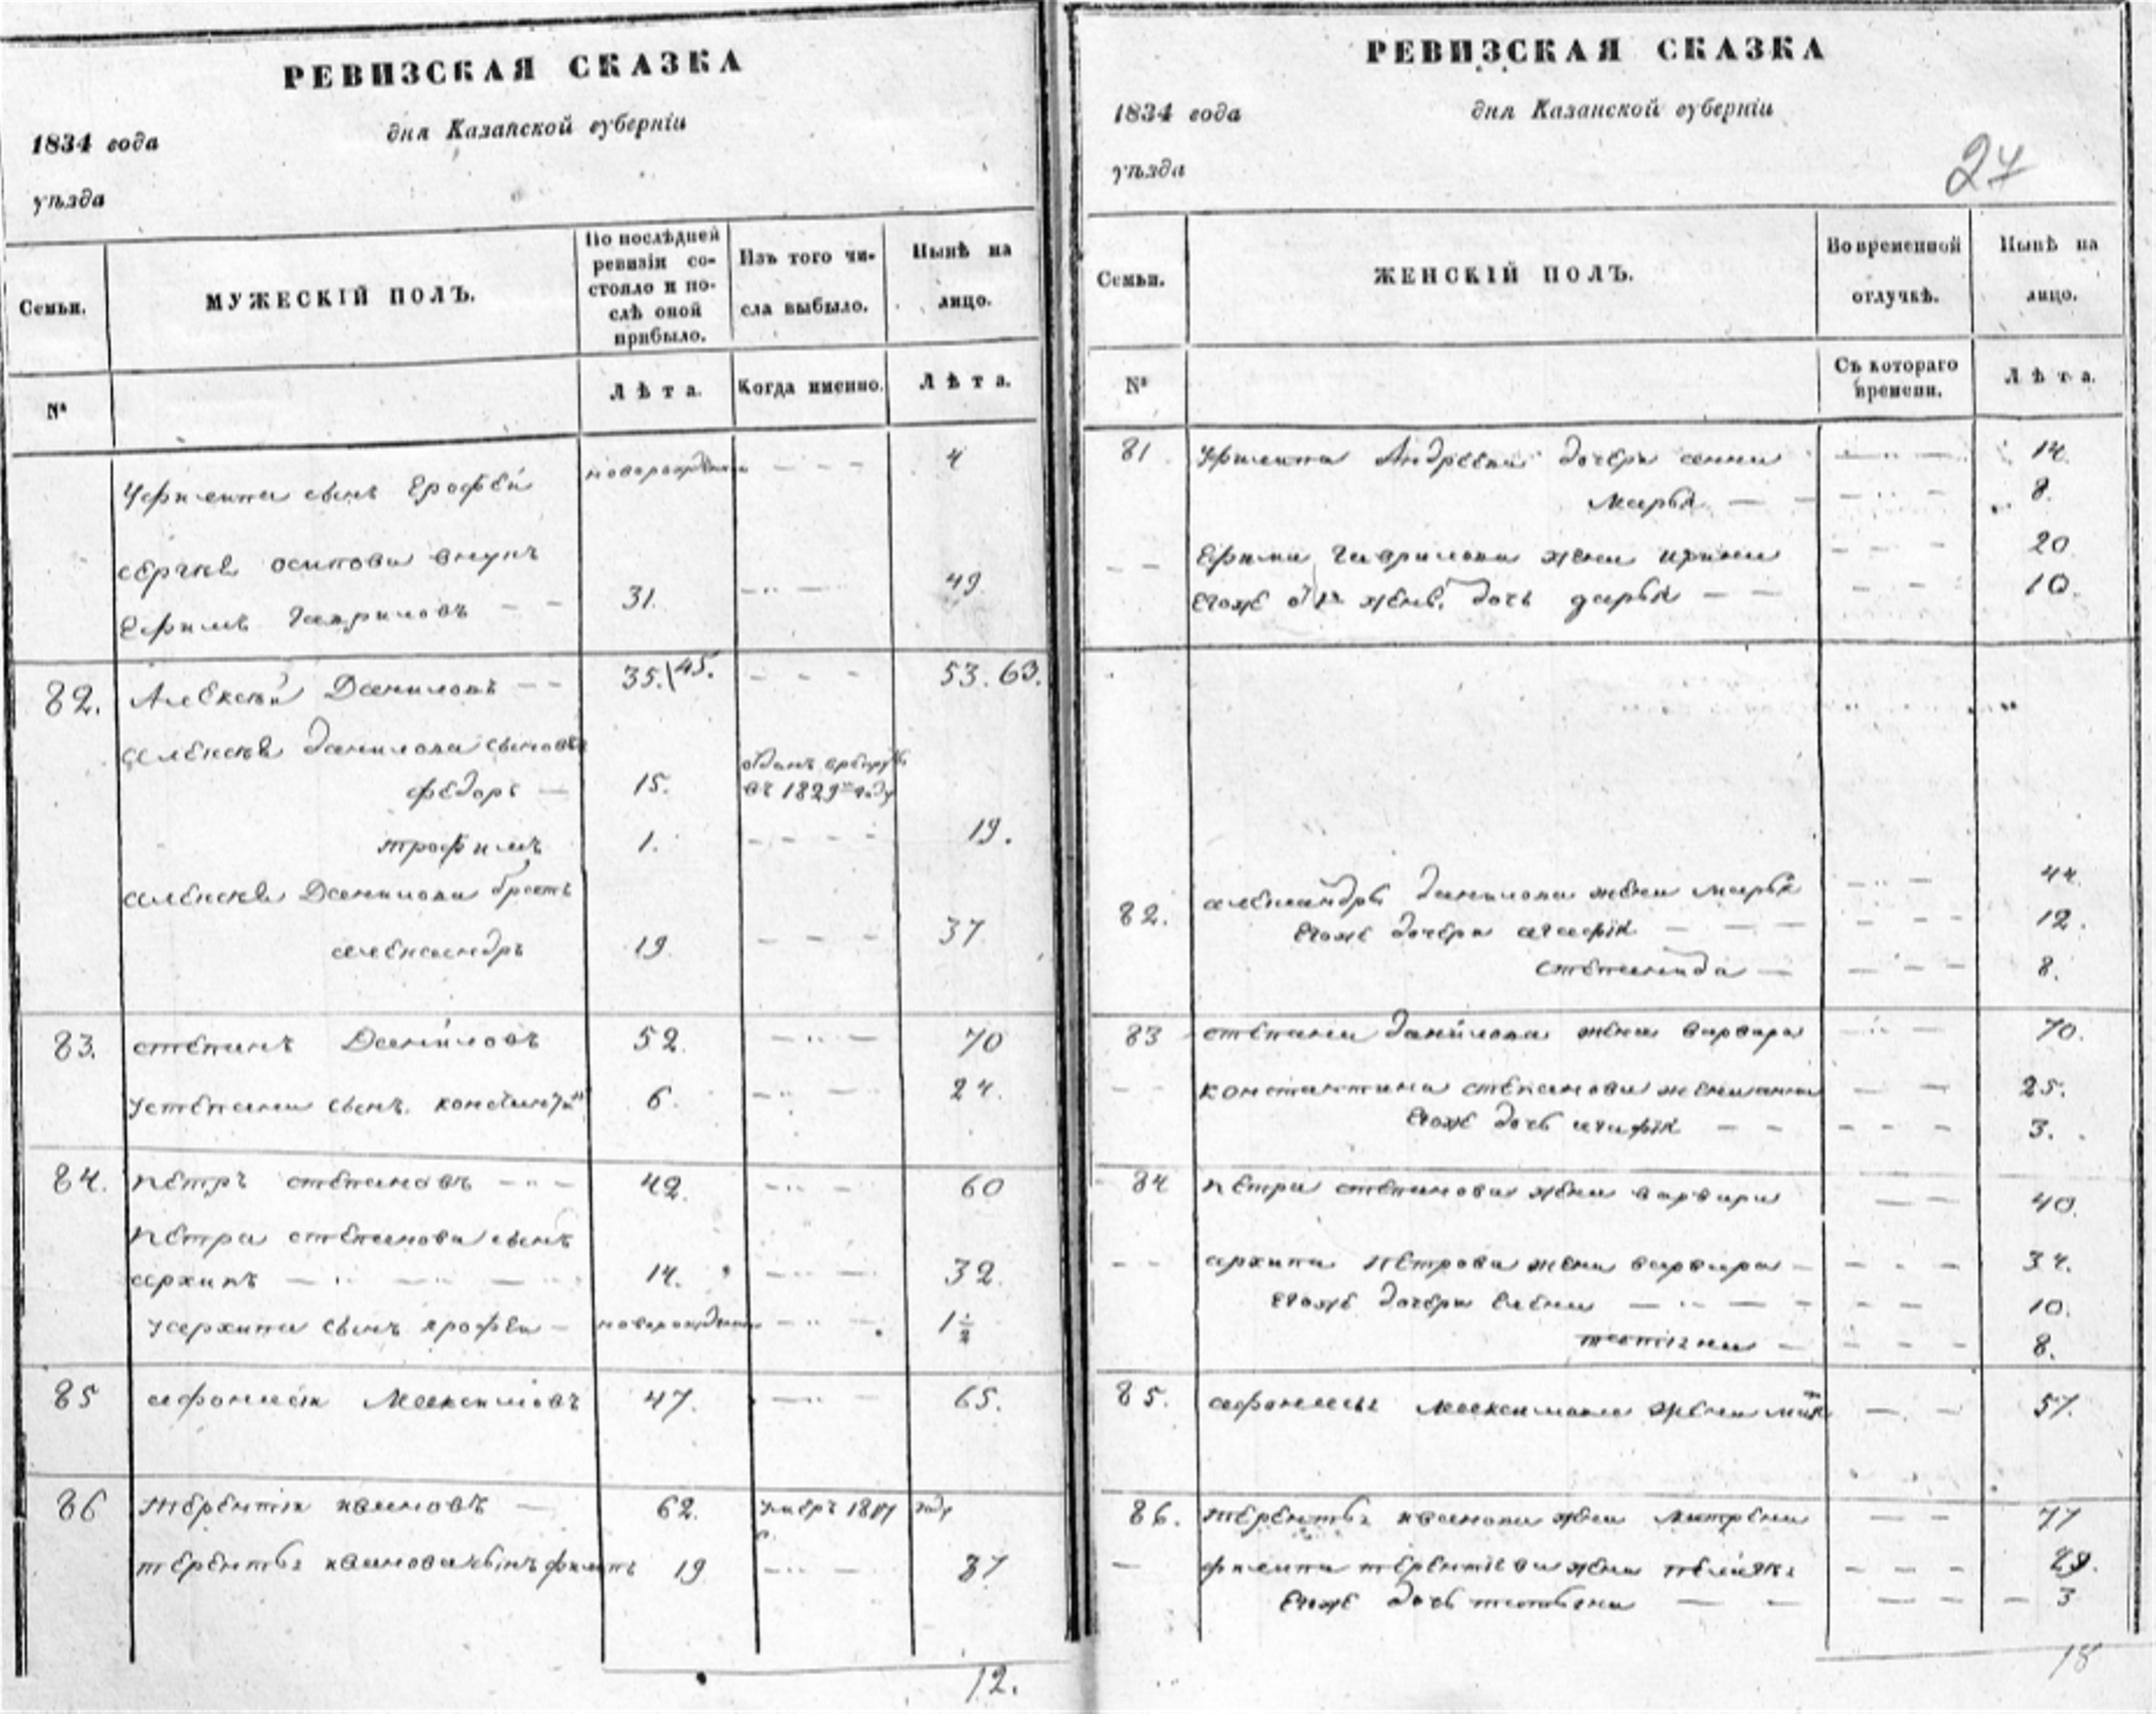 РЕВИЗСКАЯ СКАЗКА
1834 года
дня Казанской губерніи
уѣзда
Семьи.
МУЖЕСКІЙ ПОЛЪ.
По послѣдней
ревизіи со-
стояло и по-
слѣ оной
прибыло.
Изъ того чи-
сла выбыло.
Нынѣ на
лицо.
№
Лѣта.
Когда именно.
Лѣта.
сынъ Ерофей 4
Сергѣя Осипова внукъ
Ефимъ Гавриловъ 31. 49
82. Алексѣй Даниловъ 35.\45. 53.63.
Алексѣя Данилова сыновья
Федоръ 15. въ 1829 году
Трофимъ 1. 19.
Алексѣя Данилова братъ
Александръ 19 37
83. Степанъ Даниловъ 52. 70
У Степана сынъ 6. 24.
84. Петръ Степановъ 42. 60
Петра Степанова сынъ
Архипъ 14. 32.
У Архипа сынъ новорожденъ 1 1/2
85 Афонасій Максимовъ 47. 65.
86 Терентій Ивановъ 62. умеръ году
Терентья Иванова сынъ 19 37
12.
РЕВИЗСКАЯ СКАЗКА
1834 года
дня Казанской губерніи
уѣзда
27
Семьи.
ЖЕНСКІЙ ПОЛЪ.
Во временной
отлучкѣ.
Нынѣ на
лицо.
№
Съ котораго
времени.
Лѣта.
81 Андреева дочери Анна 14.
Марья 8.
Ефима Гаврилова жена Ирина 20
Его же жены дочь Дарья 10.
82. Александра Данилова жена Марья 44.
Его же дочери Агафія 12.
Степанида 8.
83 Степана Данилова жена Варвара 70.
Константина Степанова жена Анна 25.
Его же дочь Агафія 3.
84 Петра Степанова жена Варвара 40.
Архипа Петрова жена Варвара 34.
Его же дочери Елена 10.
Татіана 8.
85. Афонасья Максимова жена 57.
86. Терентья Иванова жена Матрена 77
Терентіева жена 29.
Его же дочь Татьяна 3
18